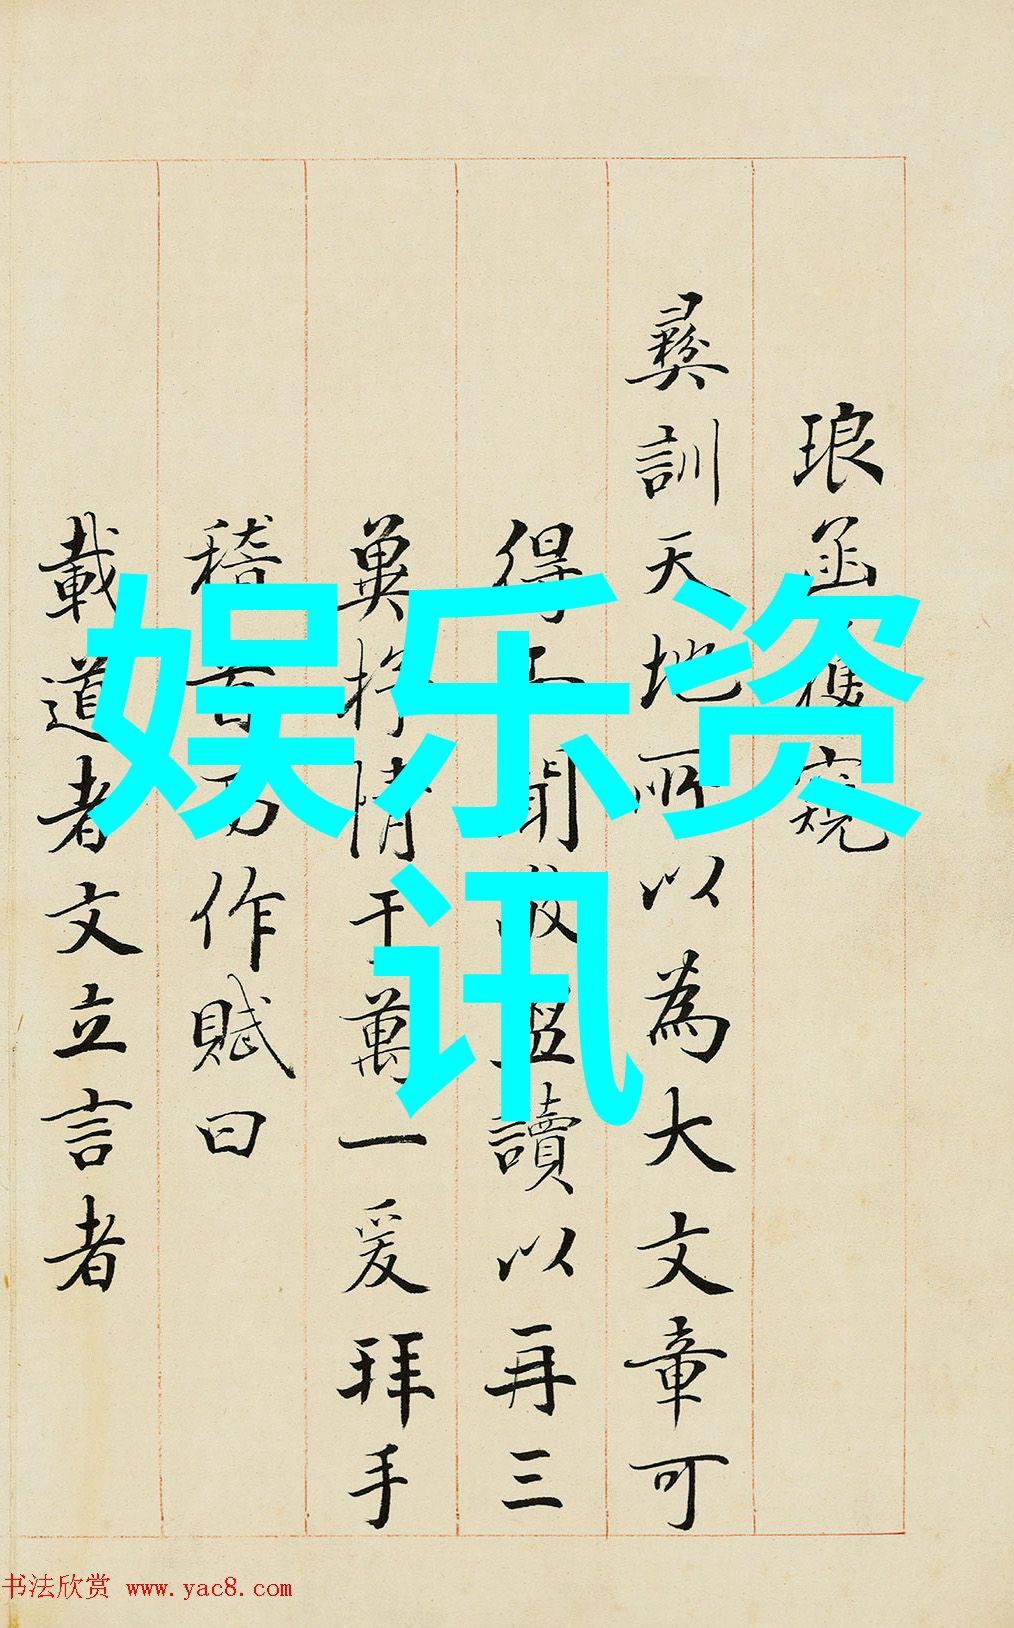 琅函獲窺
彝訓天地所以為大文章可
得而聞敬盥讀以再三
冀抒情于萬一爰拜手
稽首作賦曰
載道者文立言者
娱乐资
讯
书法欣赏 www.yac8.com